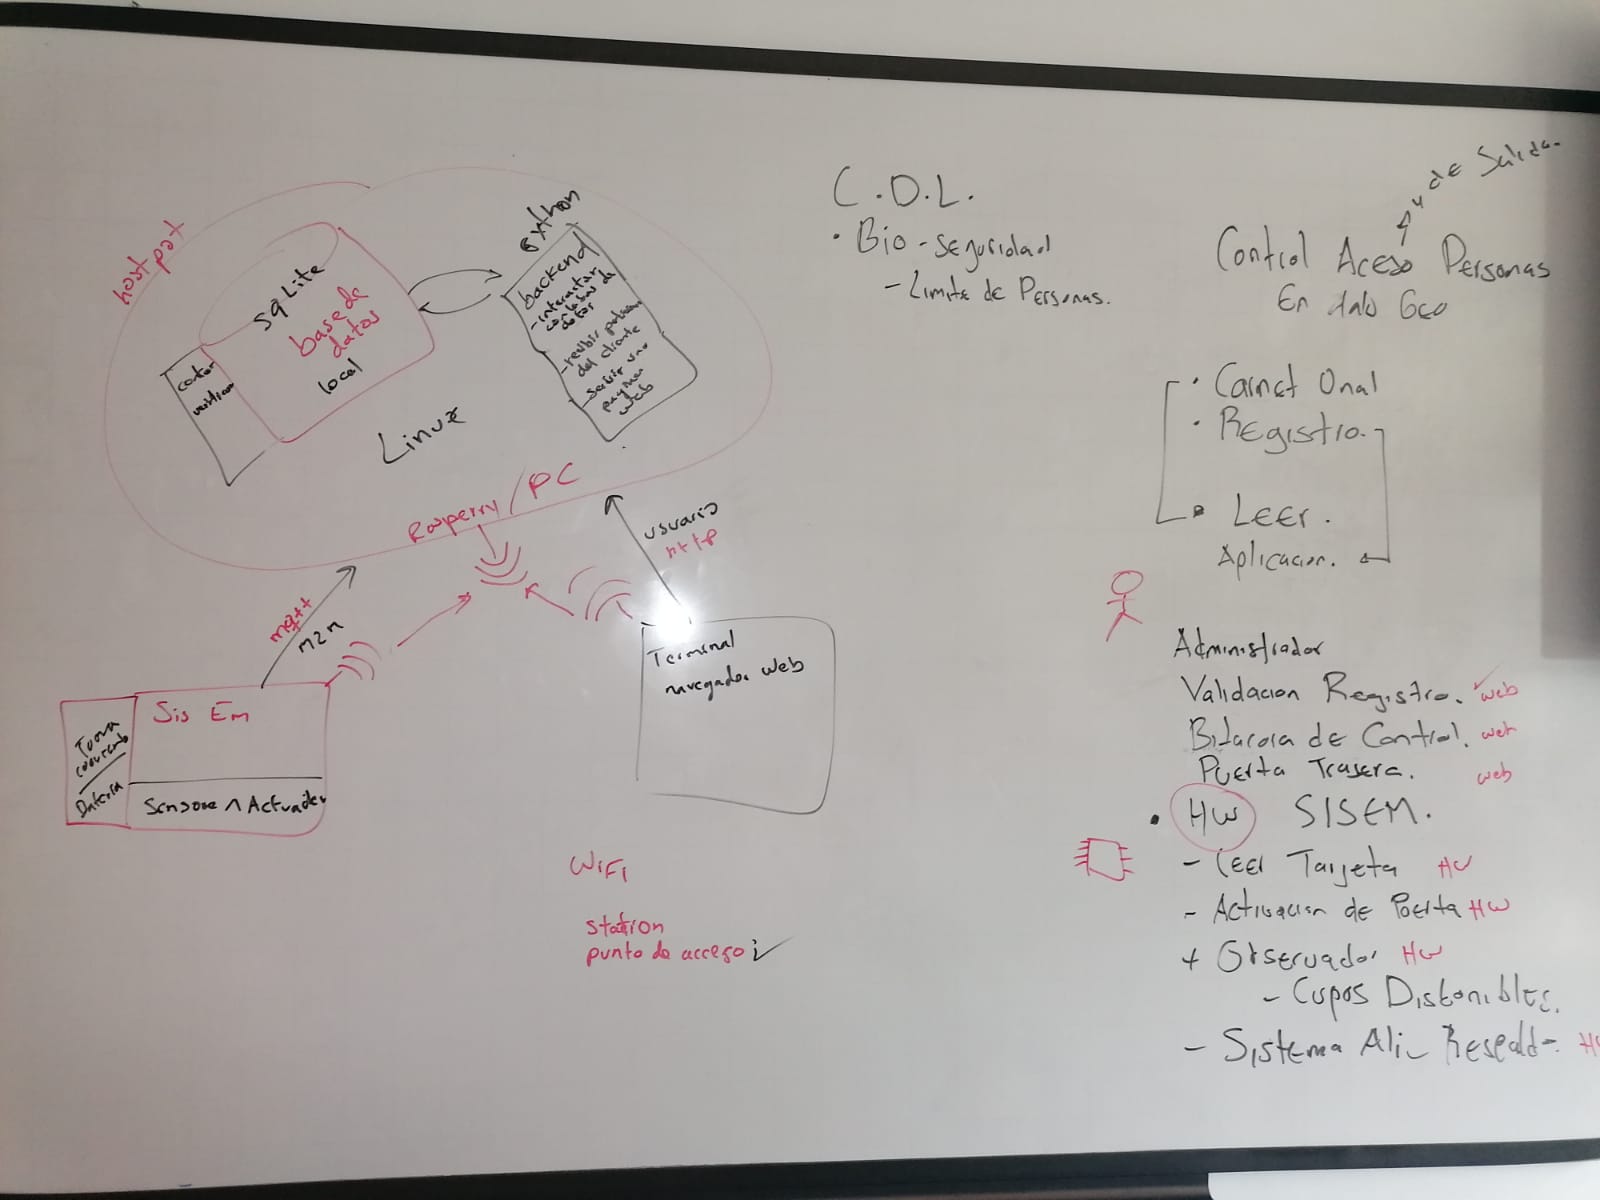 hostpot
sqLite
base de
datos
local
Linux
python
backend
- interactuar
con la bas de
datos
del cliente
- servir una
pagina
web
Rasperry / PC
usuario
http
mqtt
m2m
Terminal
navegador web
Sis Em
Toma
Bateria
Sensore ^ Actuador
WiFi
station
punto de acceso
C.D.L.
· Bio-seguridad
- Limite de Personas.
y de Salida.
Control Aceso Personas
En
· Carnet Unal
· Registro.
· Leer.
Aplicacion.
Administrador
Validacion Registro. web
Bitacora de Control. web
Puerta Trasera. web
· HW SISEM.
- Leer Tarjeta HW
- Activacion de Puerta HW
+ Observador HW
- Cupos Disponibles.
- Sistema Ali